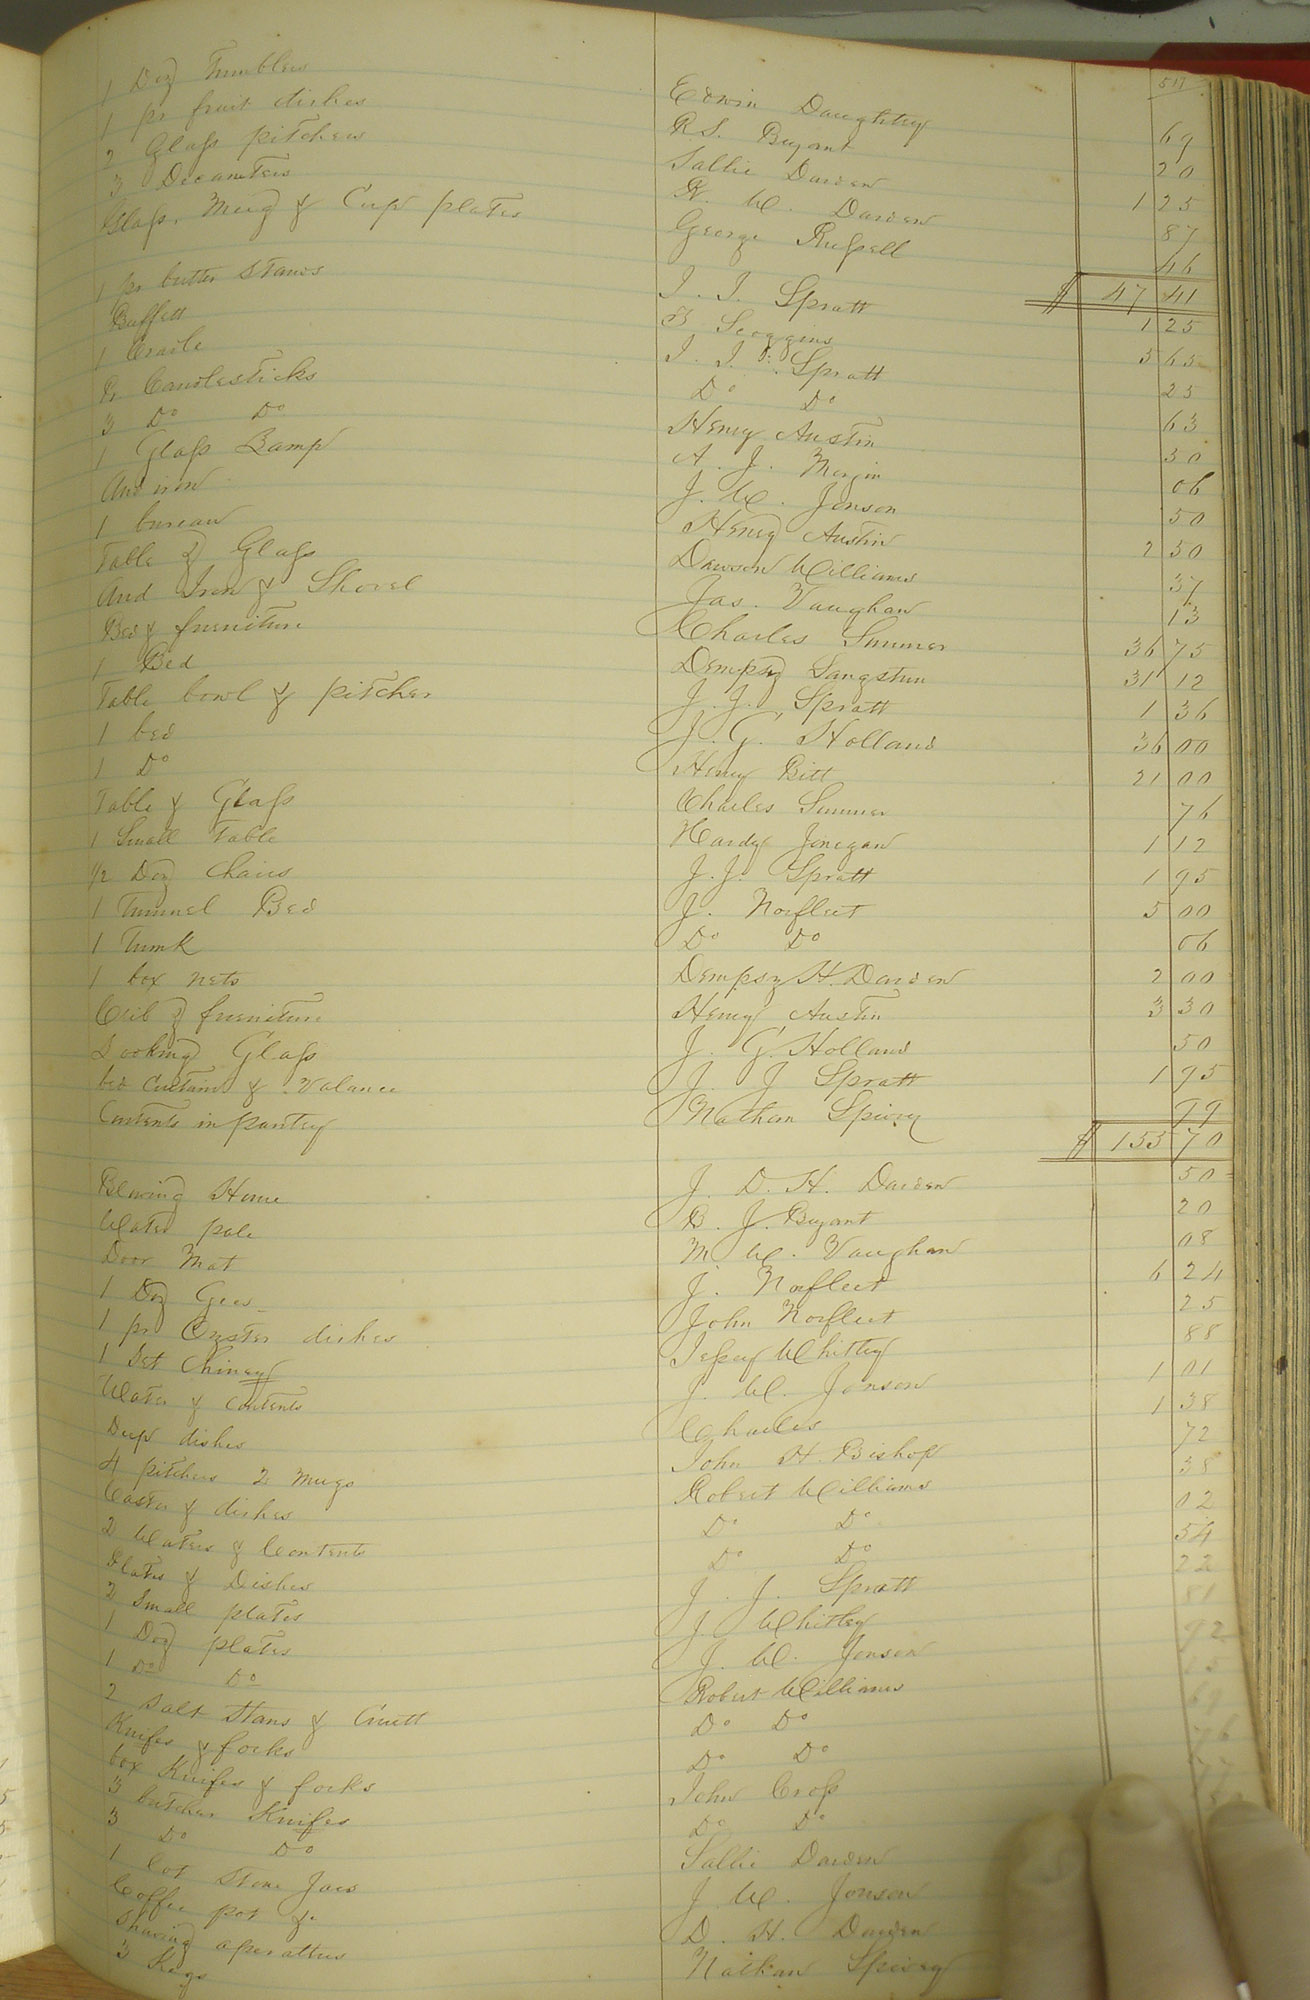 511
1 Doz Tumblers Edwin Daughtrey 69
1 pr fruit dishes R. S. Bryant 20
2 Glass pitchers Sallie Darden 1 25
3 Decanters R. W. Darden 87
Glass, Mug & Cup plates George Russell 46
$ 47 41
1 pr butter Stands J. J. Spratt 1 25
Buffett Scoggins 5 65
1 Cradle J. J. Spratt 25
Pr Candlesticks Do Do 63
3 Do Do Henry Austin 30
1 Glass Lamp A. J. 06
And iron J. W. Jonson 50
1 bureau Henry Austin 2 50
Table & Glass Dawson Williams 37
And Iron & Shovel Jas. Vaughan 13
Bed & furniture Charles Sumner 36 75
1 Bed Dempsy Langstun 31 12
Table bowl & pitcher J. J. Spratt 1 36
1 bed J. G. Holland 36 00
1 Do Henry Bitt 21 00
Table & Glass Charles Sumner 76
1 Small Table Hardy Jonegan 1 12
1/2 Doz Chairs J. J. Spratt 1 95
1 Tunnel Bed J. Norfleet 5 00
1 Trunk Do Do 06
1 box nets Dempsy H. Darden 2 00
Crib & furniture Henry Austin 3 30
Looking Glass J. G. Holland 50
bed Curtains & Valance J. J. Spratt 1 95
Contents in pantry Nathan Spivey 99
$ 155 70
Blowing Horne J. D. H. Darden 50
Water pale B. J. Bryant 20
Door Mat M. W. Vaughan 08
1 Doz Gees J. Norfleet 6 24
1 pr Oyster dishes John Norfleet 25
1 Set Chiney Jessey Whitley 88
Water & Contents J. W. Jonson 1 01
Deep dishes Charles 1 38
4 pitchers 2 Mugs John H. Bishop 72
Caster & dishes Robert Williams 38
2 Waters & Contents Do Do 02
Plates & Dishes Do Do 54
2 Small plates J. J. Spratt 22
1 Doz plates J. Whitley 81
1 Do Do J. W. Jonson 92
2 Salt Stans & Cruett Robert Williams
Knifes & forks Do Do 69
box Knifes & forks Do Do 76
3 butcher Knifes John Cross
3 Do Do Do Do
1 lot Stone Jars Sallie Darden
Coffee pot &c J. W. Jonson
Shaving aperattus D. H. Darden
3 Kegs Nathan Spivey